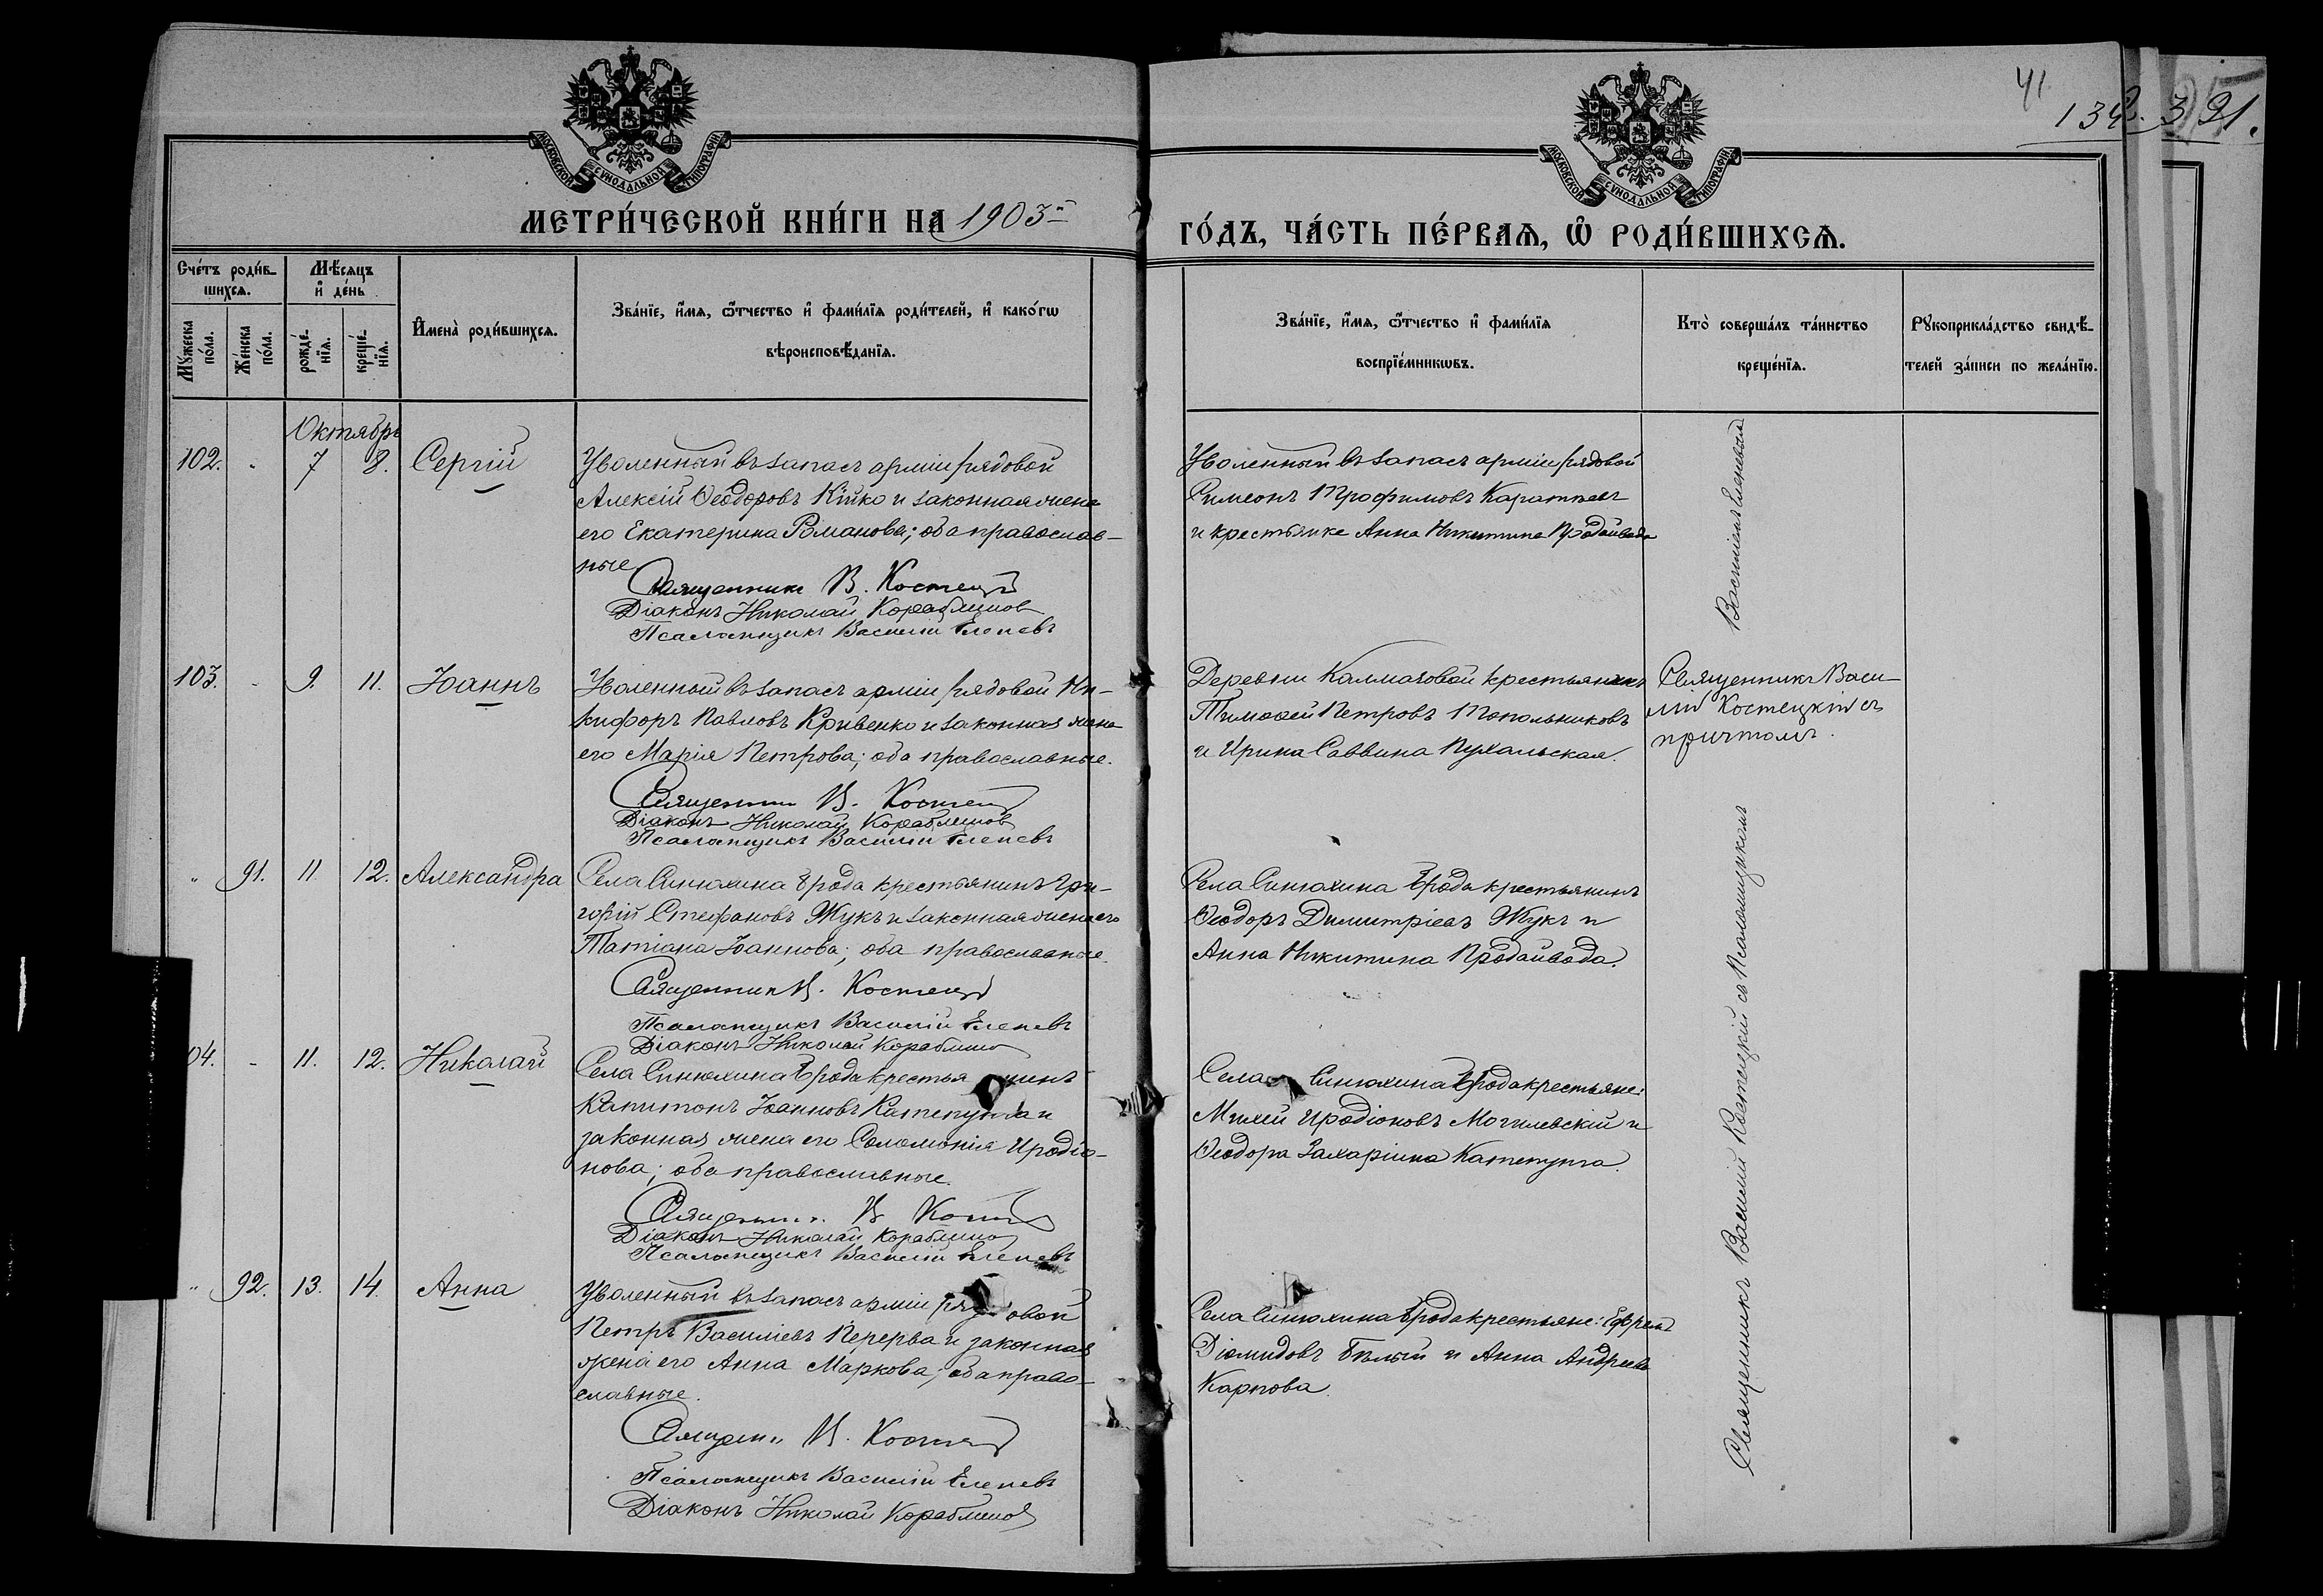 41
132. 391.
МОСКОВСКОЙ СѴНОДАЛЬНОЙ ТИПОГРАФІИ
МОСКОВСКОЙ СѴНОДАЛЬНОЙ ТИПОГРАФІИ
МЕТРИ́ЧЕСКОЙ КНИ́ГИ НА 1903й
ГО́ДЪ, ЧА́СТЬ ПЕ́РВАѦ, Ѽ РОДИ́ВШИХСѦ.
Сче́тъ роди́в-
шихсѧ.
Мѣ́сѧцъ
и҆ де́нь
Мꙋ́жеска
по́ла.
Же́нска
по́ла.
рожде́-
нїѧ.
креще́-
нїѧ.
И҆мена̀ роди́вшихсѧ.
Зва́нїе, и҆́мѧ, ѻ҆́тчество и҆ фами́лїѧ роди́телей, и҆ како́гѡ
вѣроисповѣ́данїѧ.
Зва́нїе, и҆́мѧ, ѻ҆́тчество и҆ фами́лїѧ
воспрїе́мникѡвъ.
Кто̀ соверша́лъ та́инство
креще́нїѧ.
Рꙋкоприкла́дство свидѣ́-
телей за́писи по жела́нїю.
Октябрь
102. " 7 8. Сергій
Уволенный въ запасъ арміи рядовой
Алексій Ѳеодоровъ Кійко и законная жена
его Екатерина Романова; оба православ-
ные
Священникъ В. Костецкій
Діаконъ Николай Кораблиновъ
Псаломщикъ Василій Еленевъ
Уволенный въ запасъ арміи рядовой
Симеонъ Трофимовъ
и крестьянка Анна Никитина Продайвода
103. - 9. 11. Іоаннъ
Уволенный въ запасъ арміи рядовой Ни-
кифоръ Павловъ Кривенко и законная жена
его Марія Петрова; оба православные.
Священникъ В. Костецкій
Діаконъ Николай Кораблиновъ
Псаломщикъ Василій Еленевъ
Деревни Калмазовой крестьянинъ
Тимоѳей Петровъ Топольниковъ
и Ирина Саввина Пухальская.
Священникъ Васи-
лій Костецкій съ
причтомъ.
" 91. 11 12. Александра
Села Синюхина Брода крестьянинъ Гри-
горій Стефановъ Жукъ и законная жена его
Татіана Іоаннова; оба православные.
Священникъ В. Костецкій
Псаломщикъ Василій Еленевъ
Діаконъ Николай Кораблиновъ
Села Синюхина Брода крестьянинъ
Ѳеодоръ Димитріевъ Жукъ и
Анна Никитина Продайвода.
04. - 11. 12. Николай
Села Синюхина Брода крестья нинъ
Капитонъ Іоанновъ и
законная жена его Соломонія Иродіо-
нова; оба православные.
Священникъ В Костецкій
Діаконъ Николай Кораблиновъ
Псаломщикъ Василій Еленевъ
Села Синюхина Брода крестьяне:
Иродіоновъ Могилевскій и
Ѳеодора Захаріина
" 92. 13. 14. Анна
Уволенный въ запасъ арміи ряд овой
Петръ Василіевъ Перерва и законная
жена его Анна Маркова; оба право-
славные.
Священникъ В. Костецкій
Псаломщикъ Василій Еленевъ
Діаконъ Николай Кораблиновъ
Села Синюхина Брода крестьяне: Ефремъ
Діомидовъ Бѣлый и Анна Андреева
Карпова.
Священникъ Василій Костецкій съ Псаломщикомъ
Василіемъ Еленевымъ